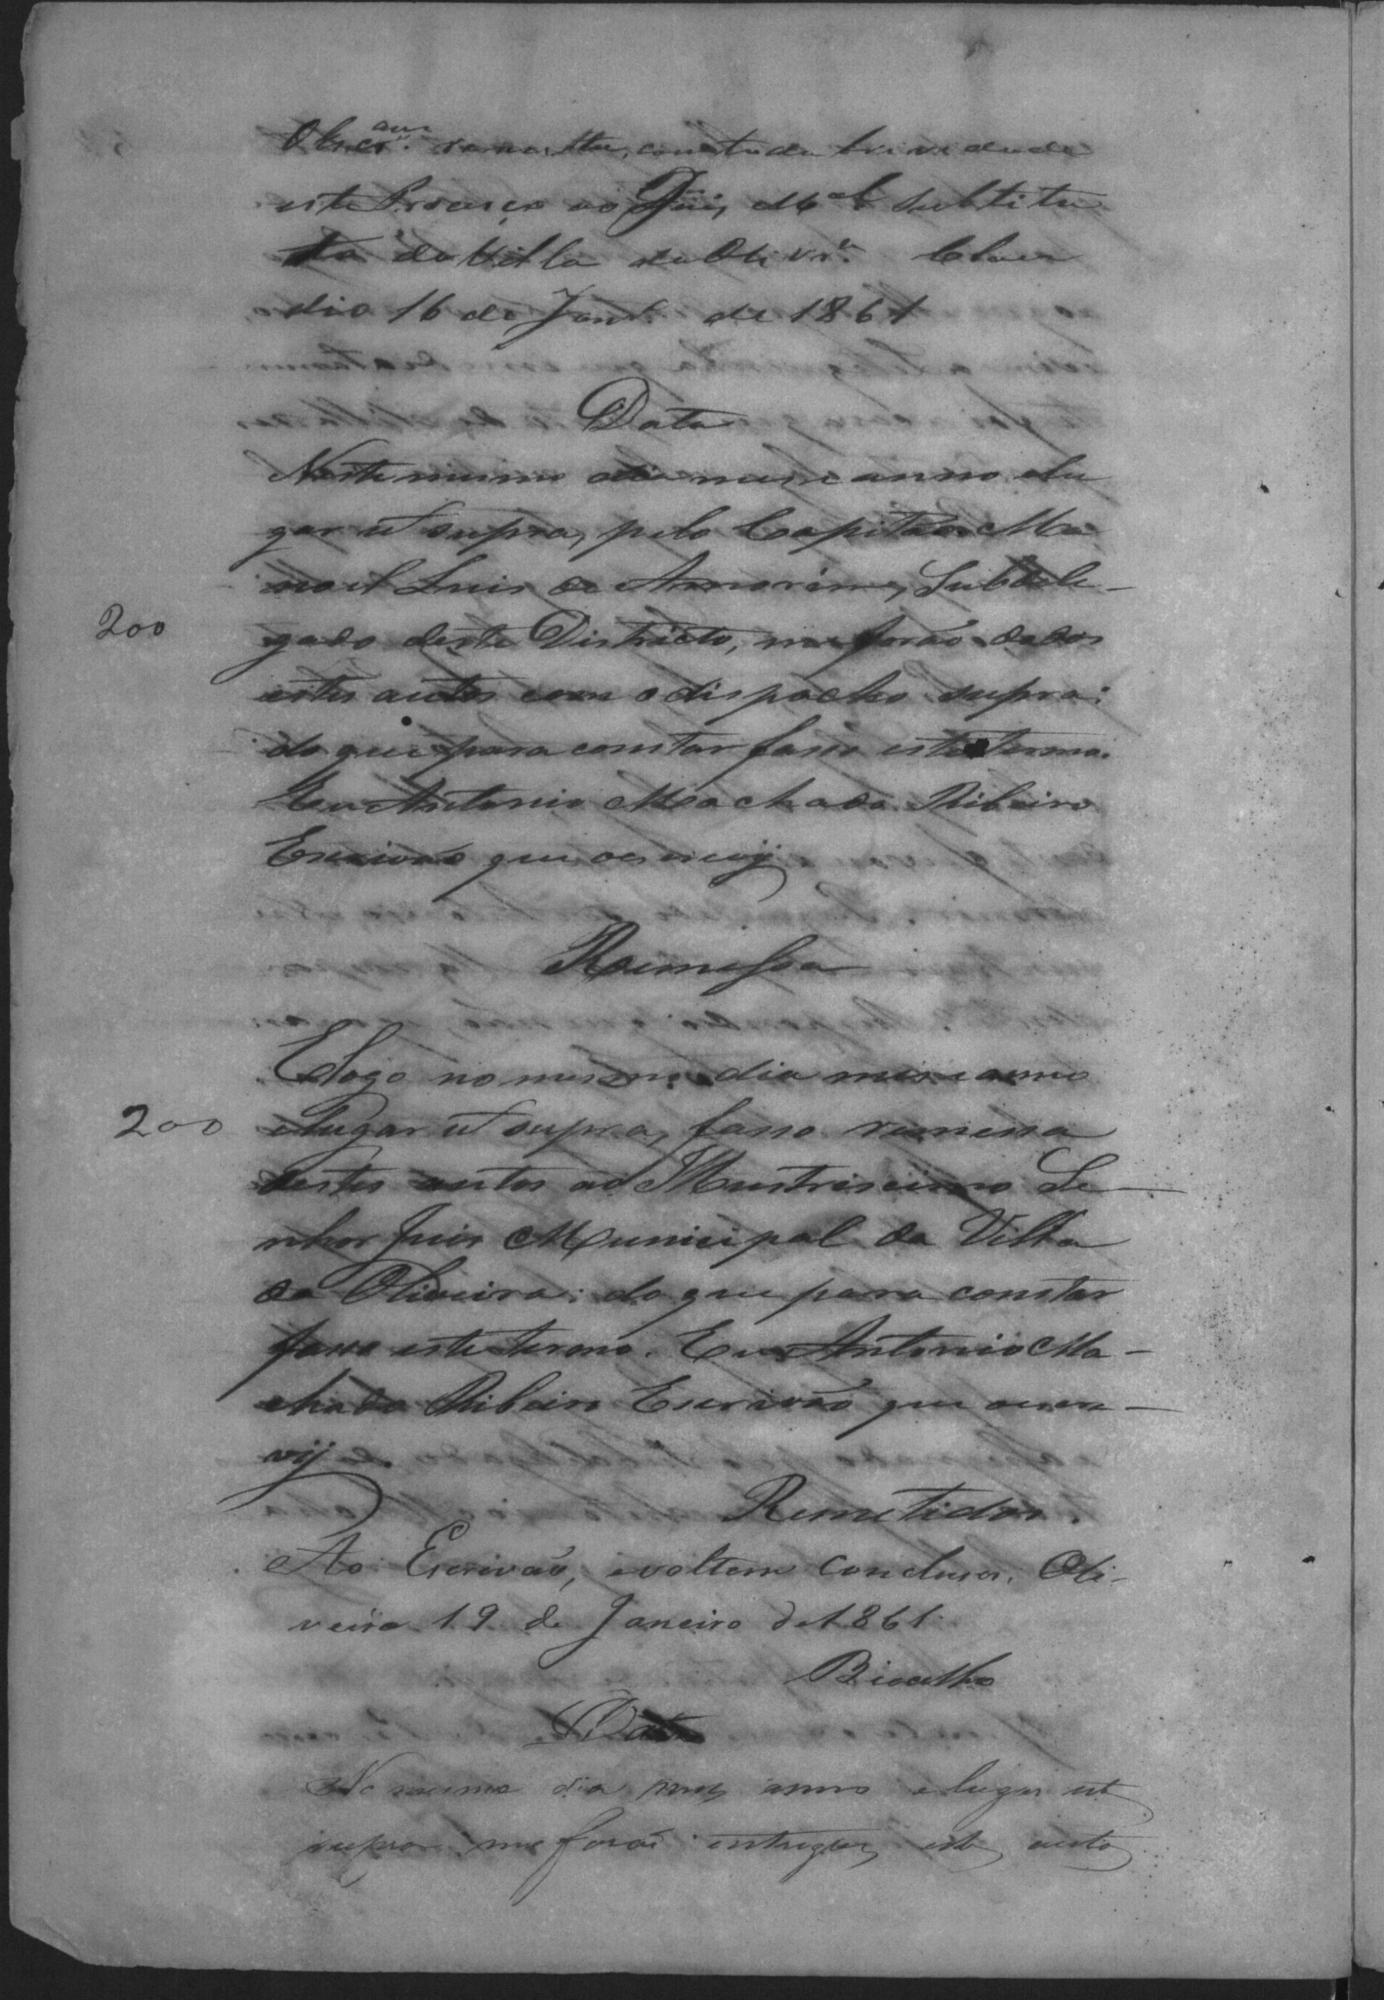 O Escr.am remetta, com toda brividade
este Prosseço ao Juis M.al Subtitu
to da Villa da Olivr.a Claudio
dia 16 de Janr.o de 1861
Data
Neste mismo dia mes e anno elu
gar ut supra, pelo Capitão Ma
noel Luis de Amorim, Subdele-
gado deste Districto, me forão dados
estes autos com o dispacho supra:
do que para constar fasso este termo.
Eu Antonio Machado Ribeiro
Escrivão que oescrevij
200
Remessa
E logo no mesmo dia mes e anno
elugar ut supra, fasso remessa
destes autos ao Illustrissimo Se-
nhor Juis Municipal da Villa
da Oliveira: do que para constar
fasso este termo. Eu Antonio Ma-
chado Ribeiro Escrivão que oescre-
vij
200
Remetidos.
Ao Escrivão, e voltem conclusos. Oli-
veira 19 de Janeiro de 1861.
Data
No mesmo dia mes anno elugar ut
supra me forão entregues este auto